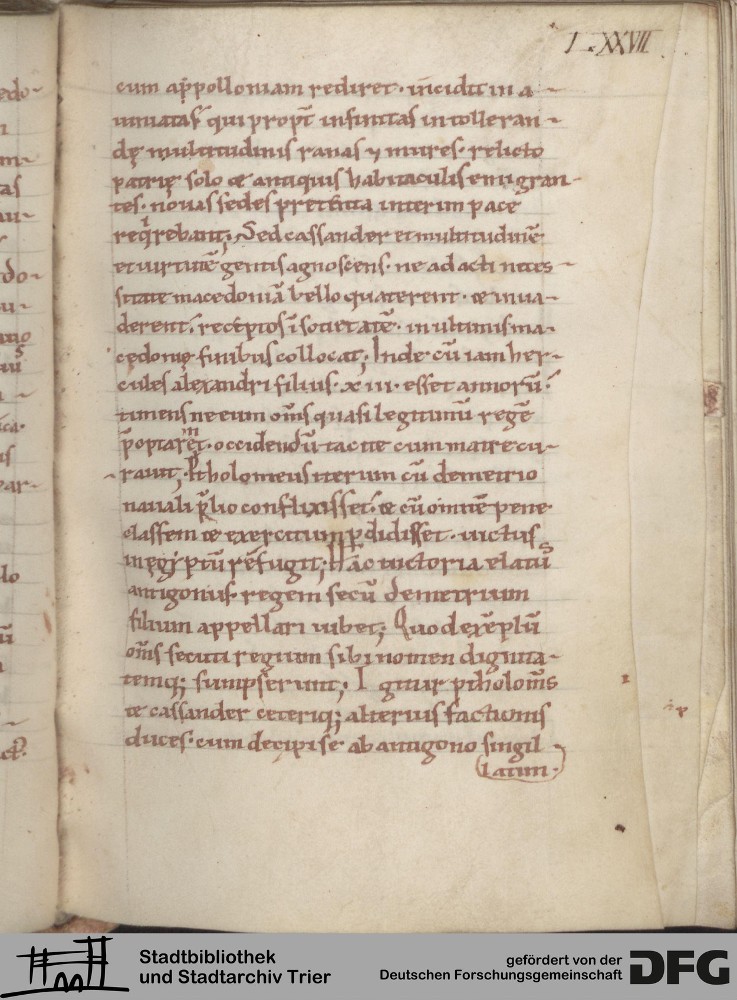 I . XXVII
cum ap̅polloniam rediret· incidit in a-
uniatas· qui propt̅ infinitas intolleran-
dę multitudinis ranas & mures· relicto
patrię solo & antiquis habitaculis emigran-
tes· novas sedes pretenta interim pace
reqͥrebant; Sed cassander et multitudinē
et uirtutē gentis agnoscens· ne ad acti neces-
sitate macedoniā bello quaterent· & inua-
derent· receptos ī societatē· in ultimis ma-
cędonię finibus collocat; Inde cū iam her-
cules alexandri filius· xiiii· esset annorū·
timens ne eum om̅s quasi legitimū regē
p̅optarent· occidendū tacite cum matre cu-
rauit; Ptholomeus iterum cū demetrio
nauali p̅lio conflixisset· & cū omnē pene
classem & exercitum ꝑdidisset· uictus
in egyptū refugit; Hac uictoria elatus
antigonus regem secū demetrium
filium appellari iubet; Quod exēplū
om̅s secuti regium sibi nomen dignita-
temq; sumpserunt; Igitur ptholom̅s
& cassander ceteriq; alterius factionis
duces· cum decipi se ab antigono singil
latim·
Stadtbibliothek
und Stadtarchiv Trier
gefördert von der
Deutschen Forschungsgemeinschaft
DFG